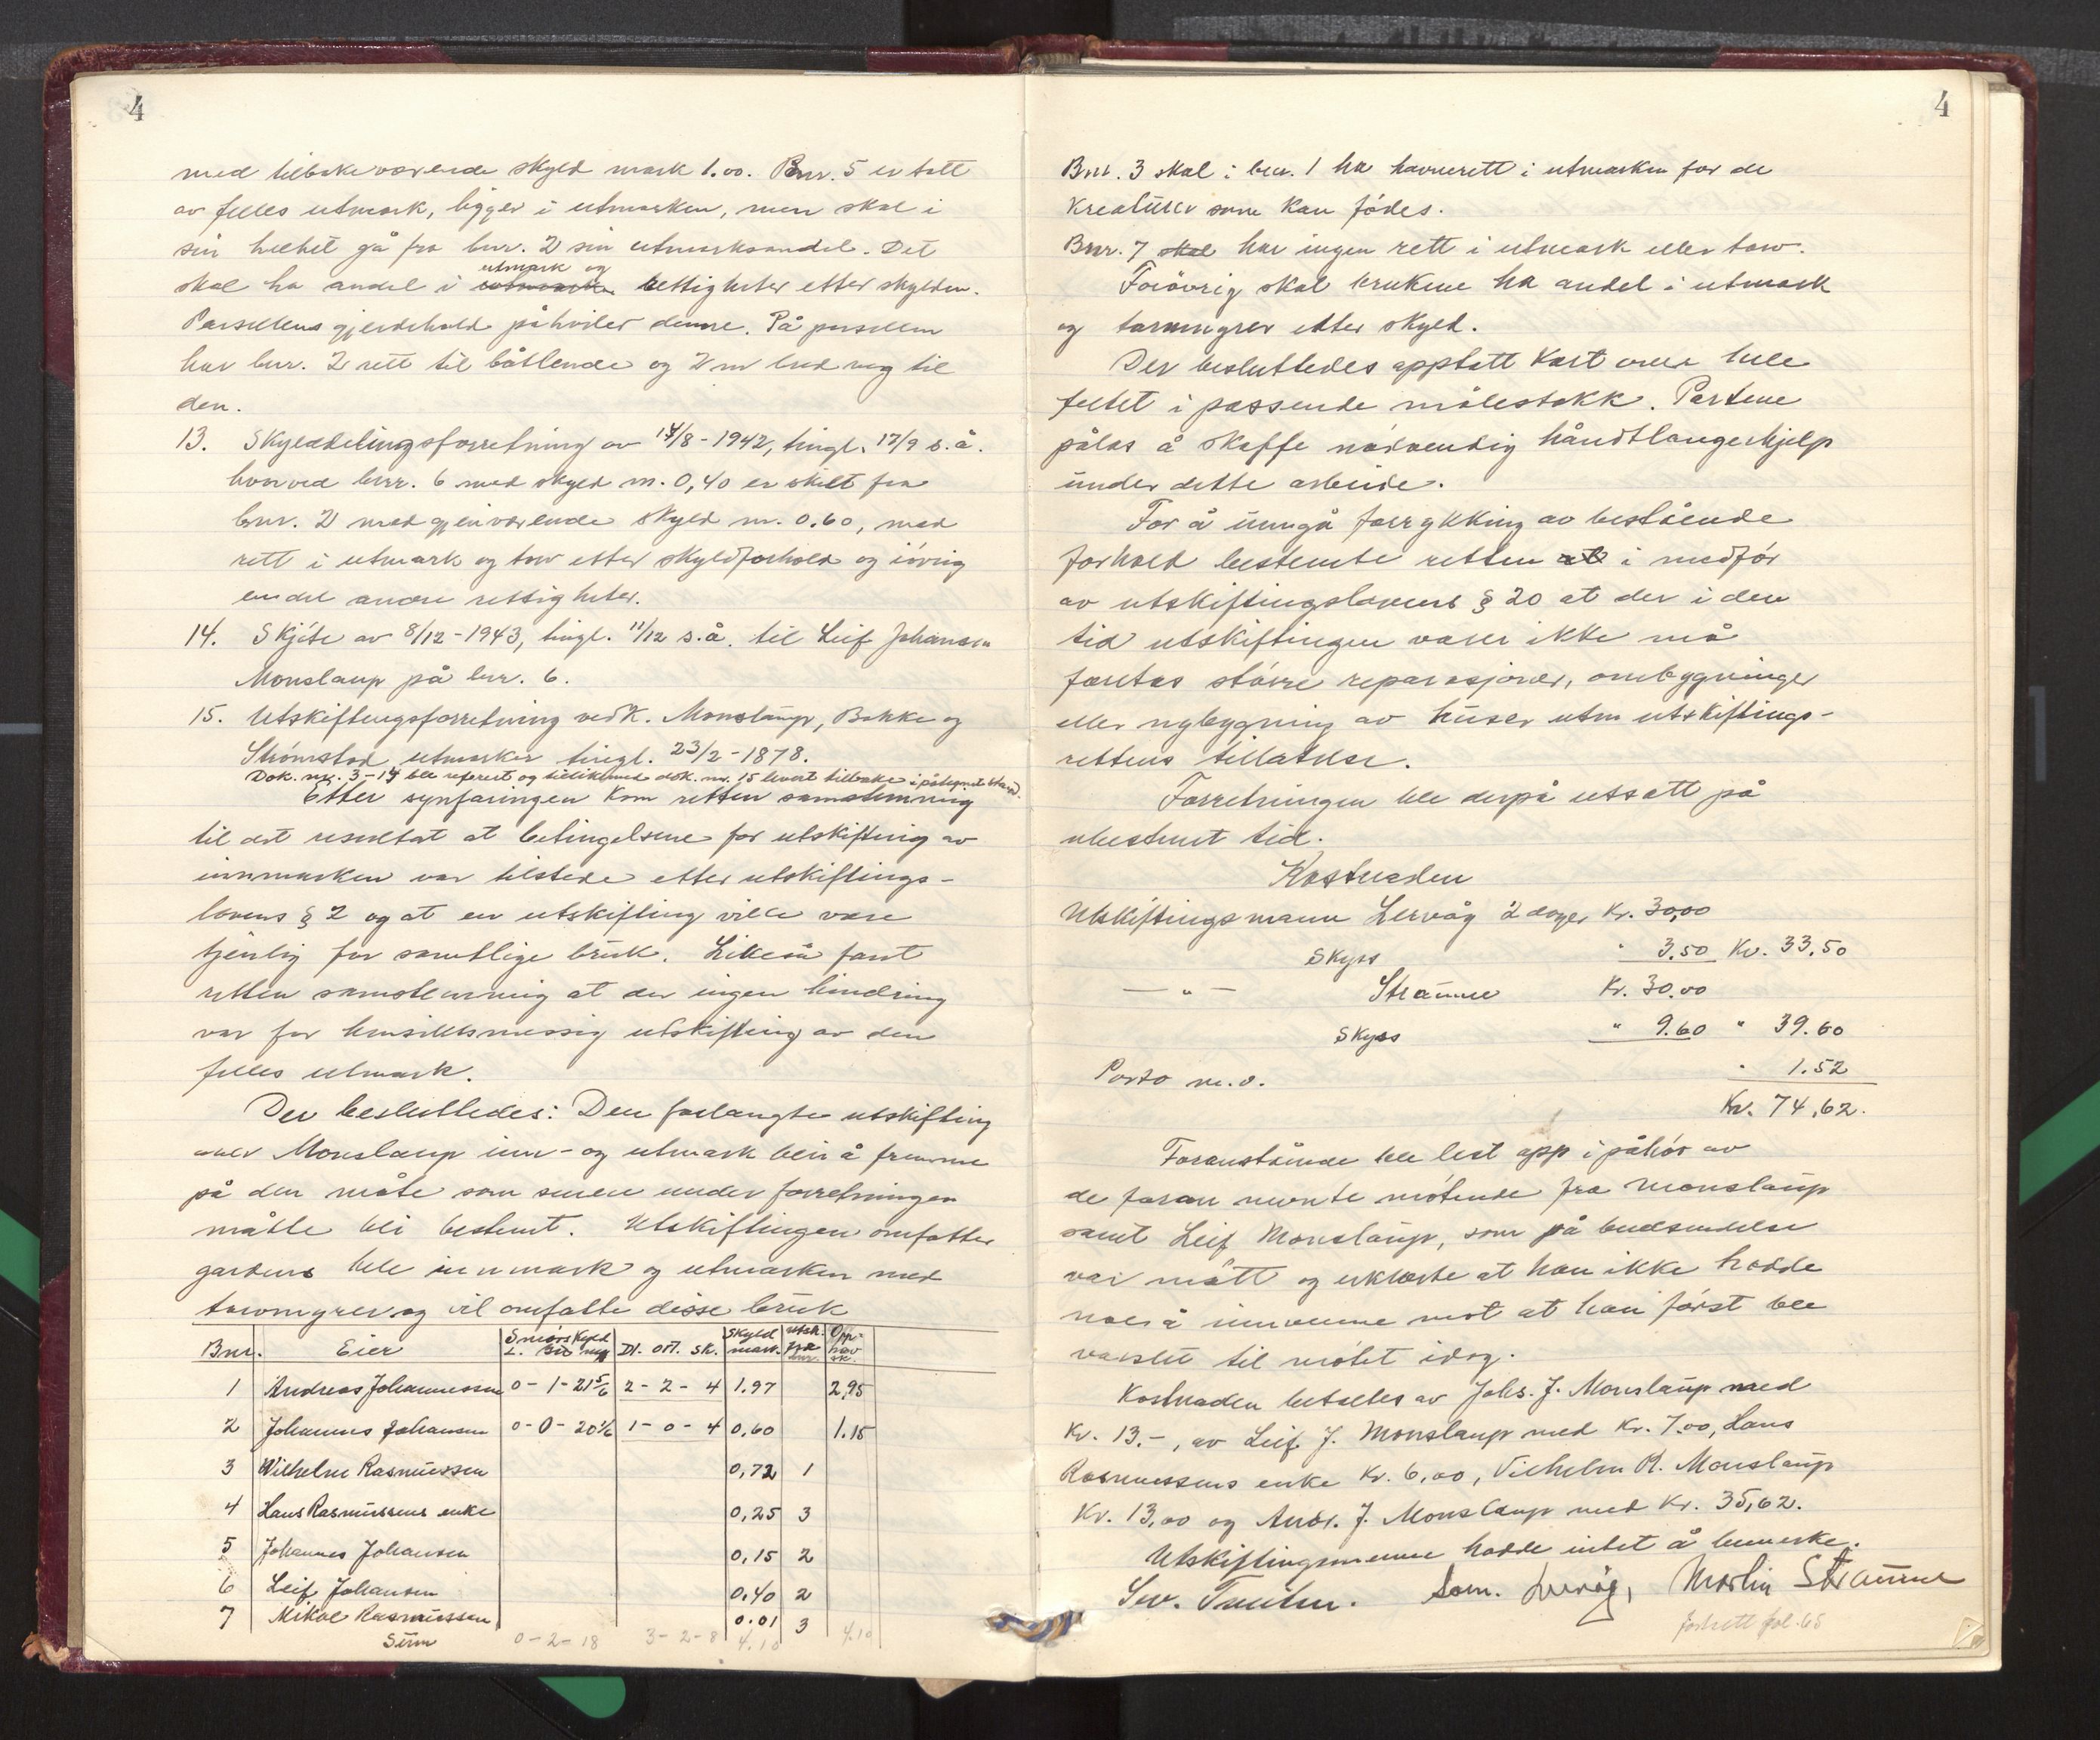 4
med tilbakeværende skyld mark 1.00. Bnr. 5 er tatt
av felles utmark, ligger i utmarken, men skal i
sin helhet gå fra bnr. 2 sin utmarksandel. Det
utmark og
skal ha andel i utmarken rettigheter etter skylden.
Parsellens gjerdehold påhviler denne. På parsellen
har bnr. 2 rett til båtlende og 2 m bred veg til
den.
13. Skylddelingsforretning av 14/8-1942, tingl. 17/9 s.å.
hvorved bnr. 6 med skyld m. 0,40 er skilt fra
bnr. 2 med gjenværende skyld m. 0.60, med
rett i utmark og torv etter skyldforhold og iøvrig
endel andre rettigheter.
14. Skjøte av 8/12-1943, tingl. 11/12 s.å. til Leif Johansen
Monslaup på bnr. 6.
15. Utskiftingsforretning vedk. Monslaup, Bakke og
Strømstad utmarker tingl. 23/2-1878.
Dok. nr. 3-14 ble referert og tillikemed dok. nr. 15 levert tilbake i påtegnet stand.
Etter synfaringen kom retten samstemmig
til det resultat at betingelsene for utskifting av
innmarken var tilstede etter utskiftings-
lovens § 2 og at en utskifting ville være
tjenlig for samtlige bruk. Likeså fant
retten samstemmig at der ingen hindring
var for hensiktsmessig utskifting av den
felles utmark.
Der besluttedes: Den forlangte utskifting
over Monslaup inn- og utmark blir å fremme
på den måte som senere under forretningen
måtte bli bestemt. Utskiftingen omfatter
gardens hele innmark og utmarken med
torvmyrer og vil omfatte disse bruk
Bnr. Eier Smørskyld L. Dl. ort. sk. Skyld mark. Utsk. fra bnr. Opp- hav sk.
1 Andreas Johannessen 0-1-21 5/6 2-2-4 1.97 2,95
2 Johannes Johansen 0-0-20 1/6 1-0-4 0,60 1.15
3 Wilhelm Rasmussen 0,72 1
4 Hans Rasmussens enke 0,25 3
5 Johannes Johansen 0,15 2
6 Leif Johansen 0,40 2
7 Mikal Rasmussen 0.01 3
Sum 0-2-18 3-2-8 4.10 4.10
4
Bnr. 3 skal i bnr. 1 ha havnerett i utmarken for de
kreaturer som kan fødes.
Bnr. 7 skal har ingen rett i utmark eller torv.
Forøvrig skal brukene ha andel i utmark
og torvmyrer etter skyld.
Der besluttedes opptatt kart over hele
feltet i passende målestokk. Partene
pålas å skaffe nødvendig håndtlangerhjelp
under dette arbeide.
For å unngå forrykking av bestående
forhold bestemte retten at i medfør
av utskiftingslovens § 20 at der i den
tid utskiftingen varer ikke må
foretas større reparasjoner, ombygninger
eller nybygning av huser uten utskiftings-
rettens tillatelse.
Forretningen ble derpå utsatt på
ubestemt tid.
Kostnaden
Utskiftingsmann Lervåg 2 dager Kr. 30,00
Skyss " 3,50 Kr. 33,50
— " — Straume Kr. 30.00
Skyss " 9.60 " 39.60
Porto m.v. " 1.52
Kr. 74,62.
Foranstående ble lest opp i påhør av
de foran nevnte møtende fra Monslaup
samt Leif Monslaup, som på budsendelse
var møtt og erklærte at han ikke hadde
noe å innvenne mot at han først ble
varslet til møtet idag.
Kostnaden betaltes av Johs. J. Monslaup med
Kr. 13.-, av Leif J. Monslaup med Kr. 7.00, Hans
Rasmussens enke Kr. 6,00, Vilhelm R. Monslaup
Kr. 13,00 og Andr. J. Monslaup med Kr. 35,62.
Utskiftingsmennene hadde intet å bemerke.
Sev. Lervåg, Martin Straume
forts. fol. 65